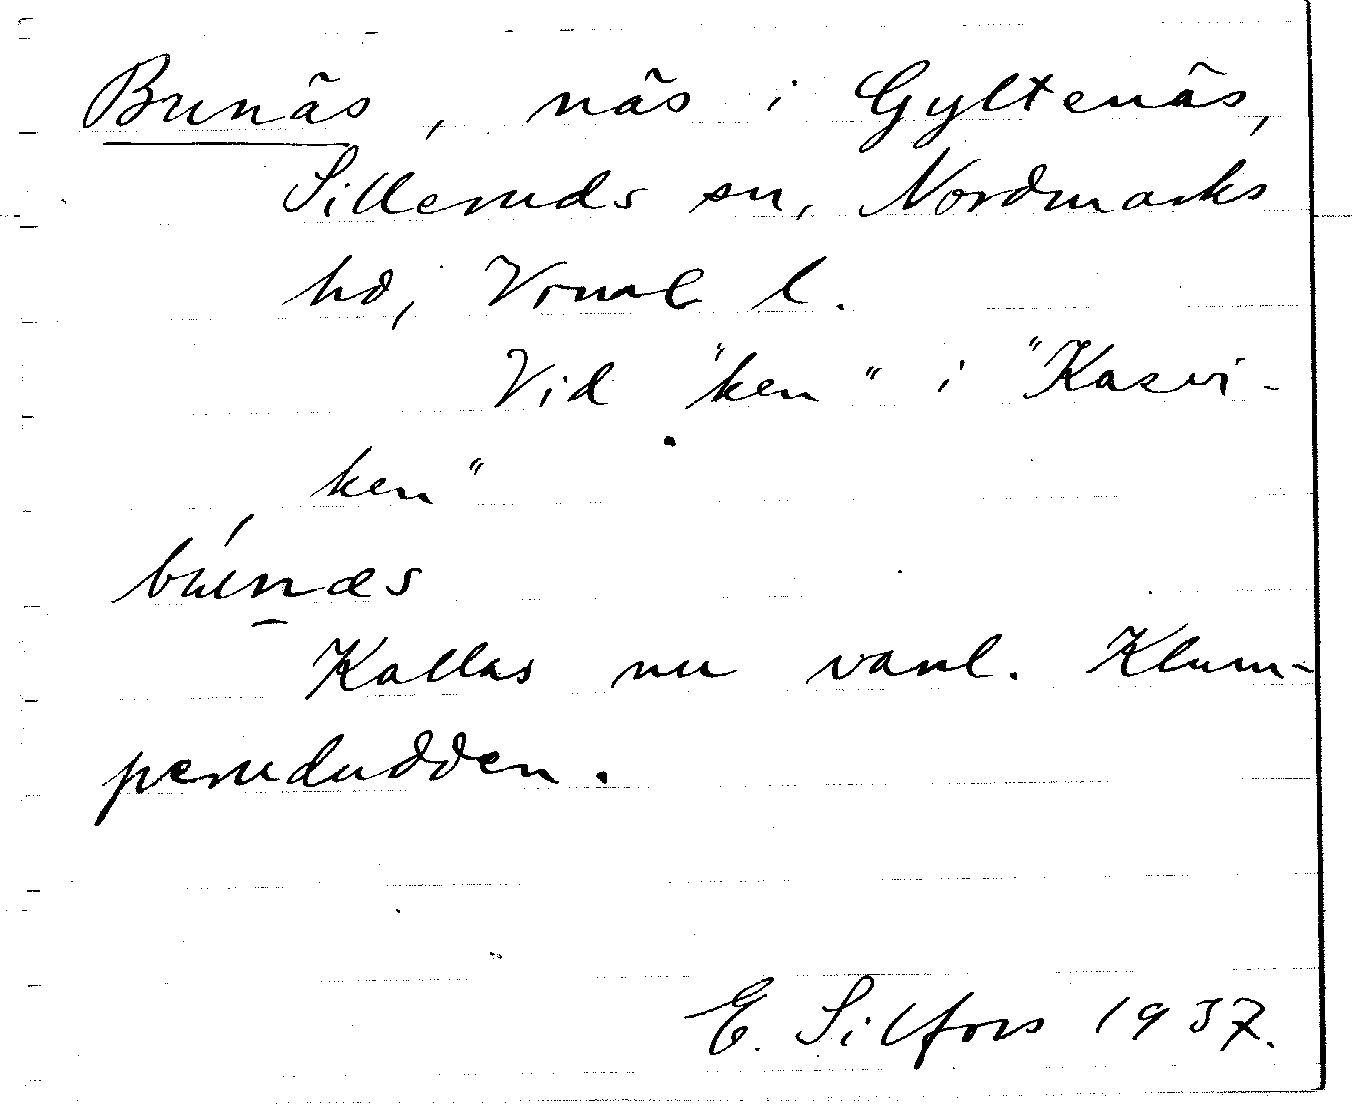 Bunäs, näs i Gyltenäs,
Silleruds sn, Nordmarks
hd, Vrml l.
Vid "ken" i "Kasvi-
ken"
búnæs
Kallas nu vanl. Klum-
perududden.
E. Silfors 1937.